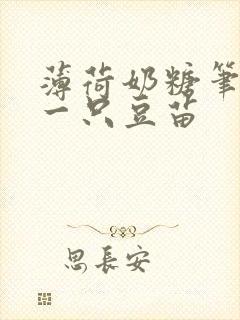 薄荷奶糖笔
一只豆苗
思長安